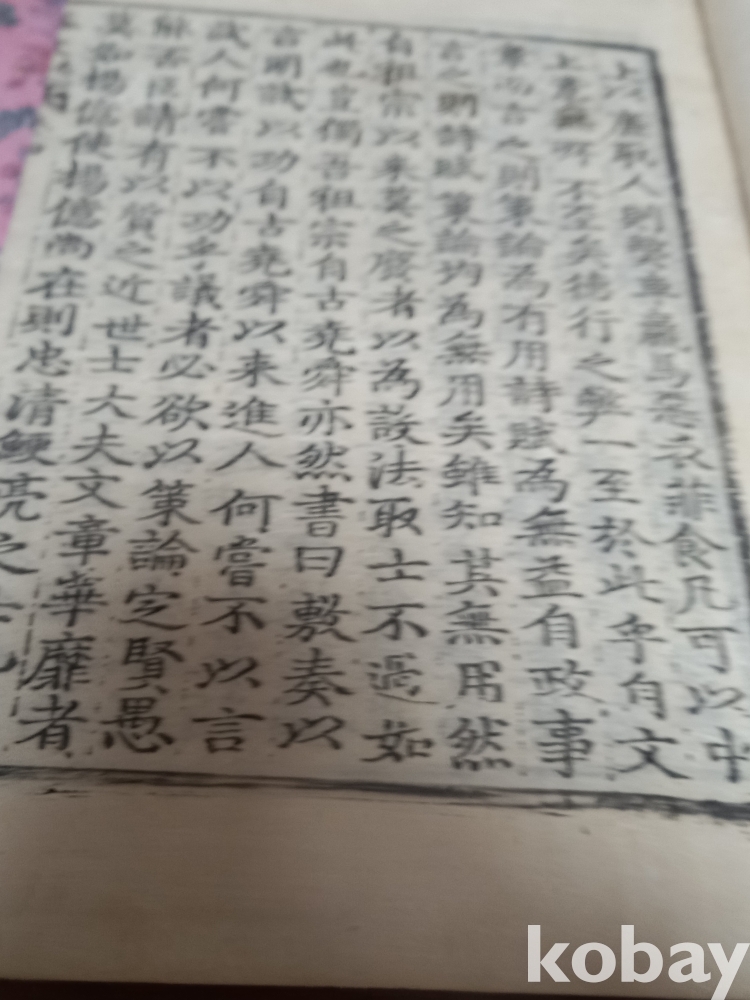 上以廉取人則弊車羸馬惡衣菲食凡可以中
上意無所不至矣德行之弊一至於此乎自文
章而言之則策論為有用詩賦為無益自政事
言之則詩賦策論均為無用矣雖知其無用然
自祖宗以來莫之廢者以為設法取士不過如
此也豈獨吾祖宗自古堯舜亦然書曰敷奏以
言明試以功自古堯舜以來進人何嘗不以言
試人何嘗不以功乎議者必欲以策論定賢愚
能否臣請有以質之近世士大夫文章華靡者
莫如楊億使楊億尚在則忠清鯁亮之
kobay